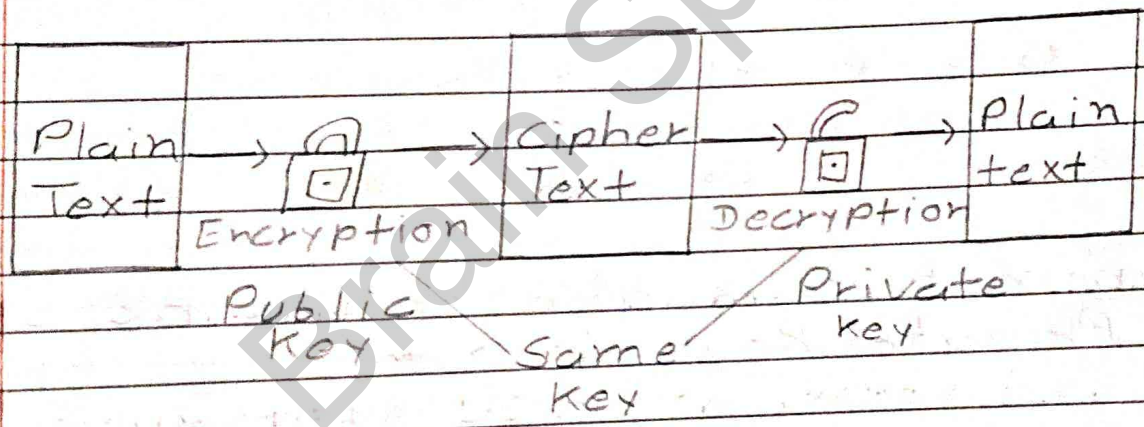 Plain
Text
Encryption
Cipher
Text
Decryption
Plain
text
Public
Key
Private
Key
Same
Key
Brain Sp